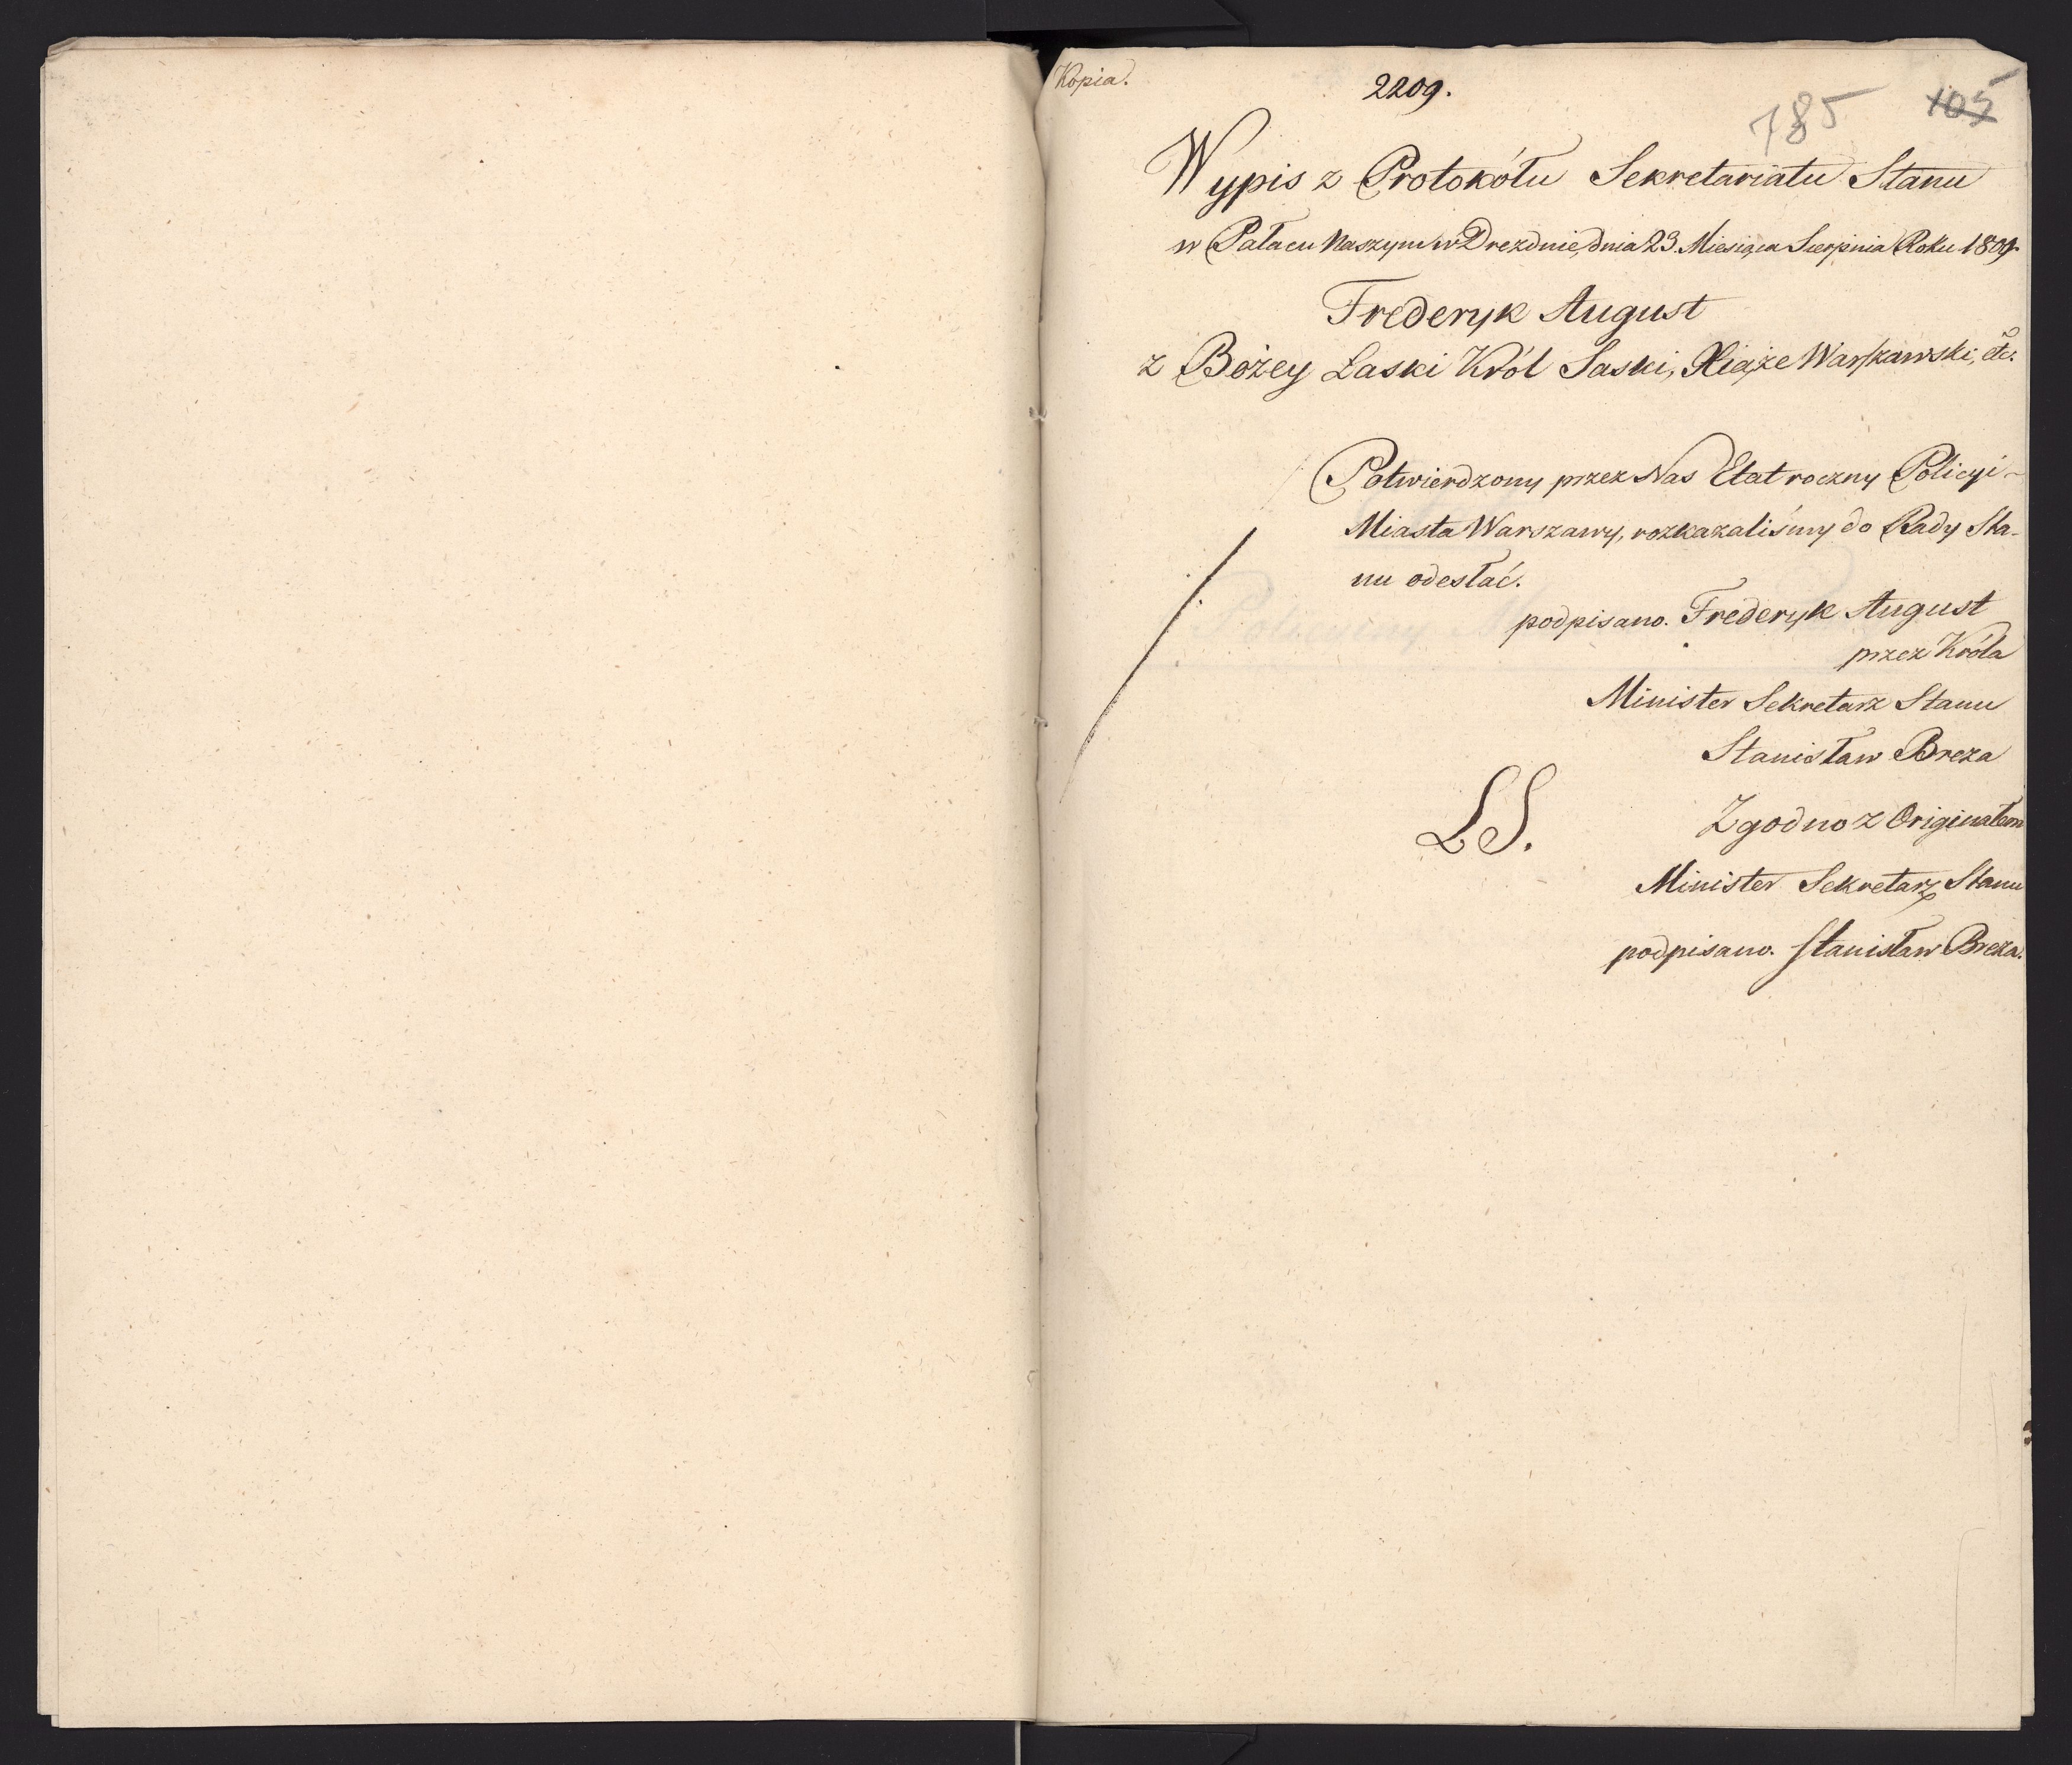 Kopia.
2209.
785 105
Wypis z Protokółu Sekretariatu Stanu
w Pałacu Naszym w Dreznie, dnia 23. Miesiąca Sierpnia Roku 1809.
Frederyk August
z Bożey Łaski Król Saski, Xiąże Warszawski, etc.
Potwierdzony przez Nas Etat roczny Policyi
Miasta Warszawy, rozkazaliśmy do Rady Sta-
nu odesłać.
podpisano. Frederyk August
przez Króla
Minister Sekretarz Stanu
Stanisław Breza
LS.
Zgodno z Originałem
Minister Sekretarz Stanu
podpisano. Stanisław Breza.